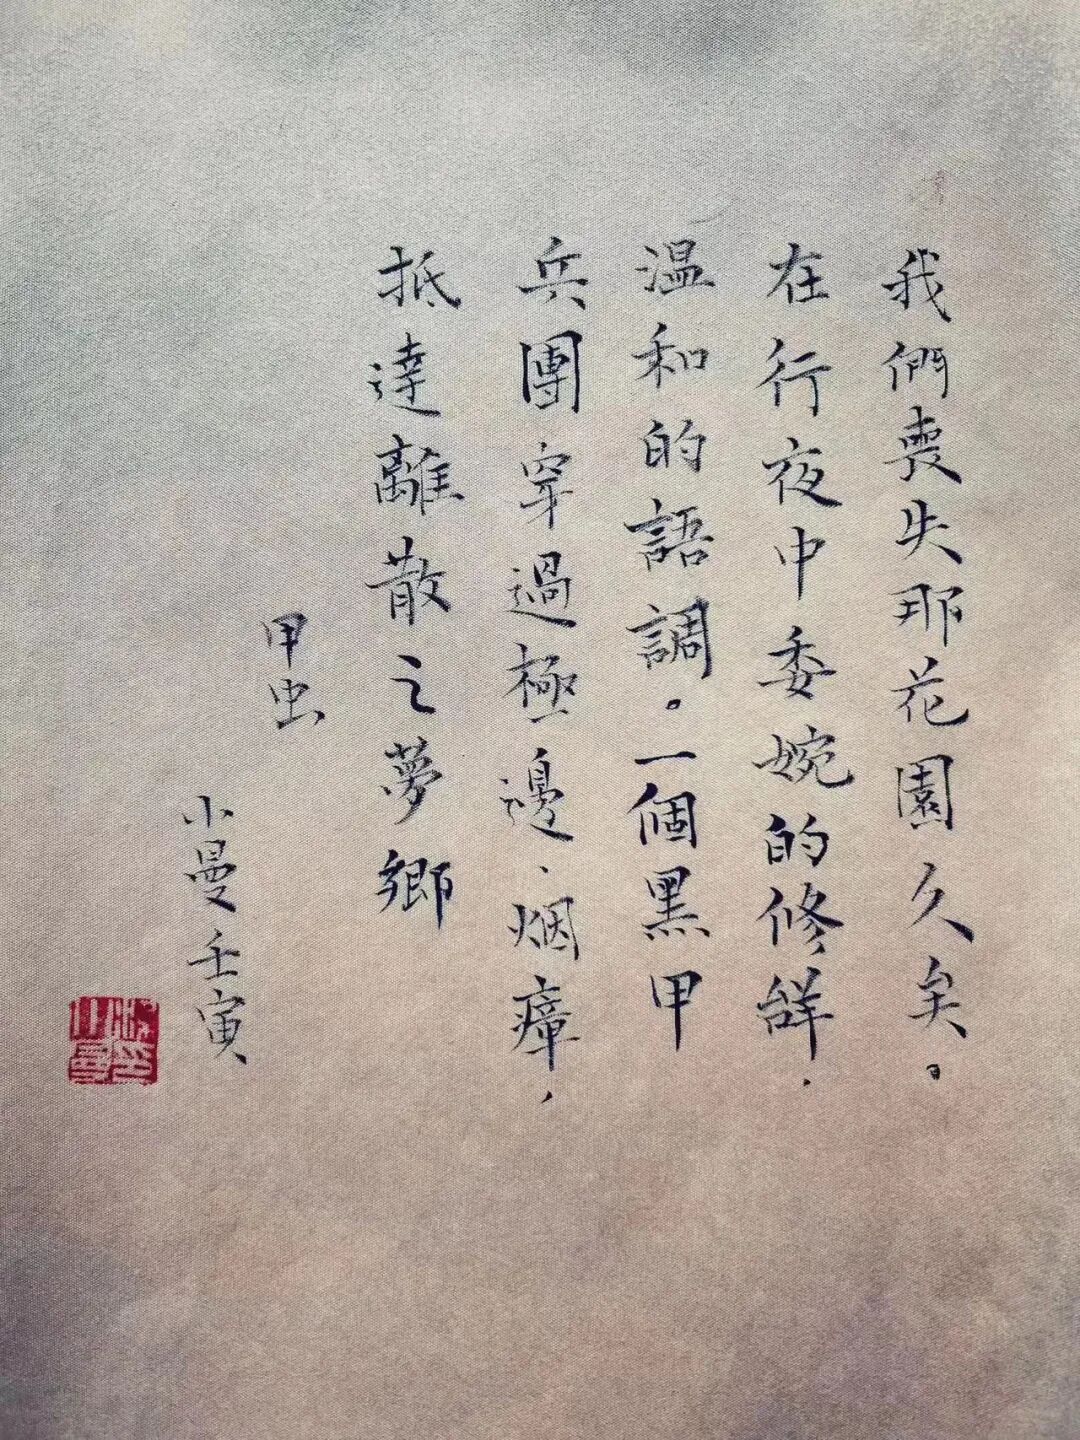 我們喪失那花園久矣。
在行夜中委婉的修辭,
溫和的語調。一個黑甲
兵團穿過極邊、烟瘴,
抵達離散之夢鄉
甲虫
小曼壬寅